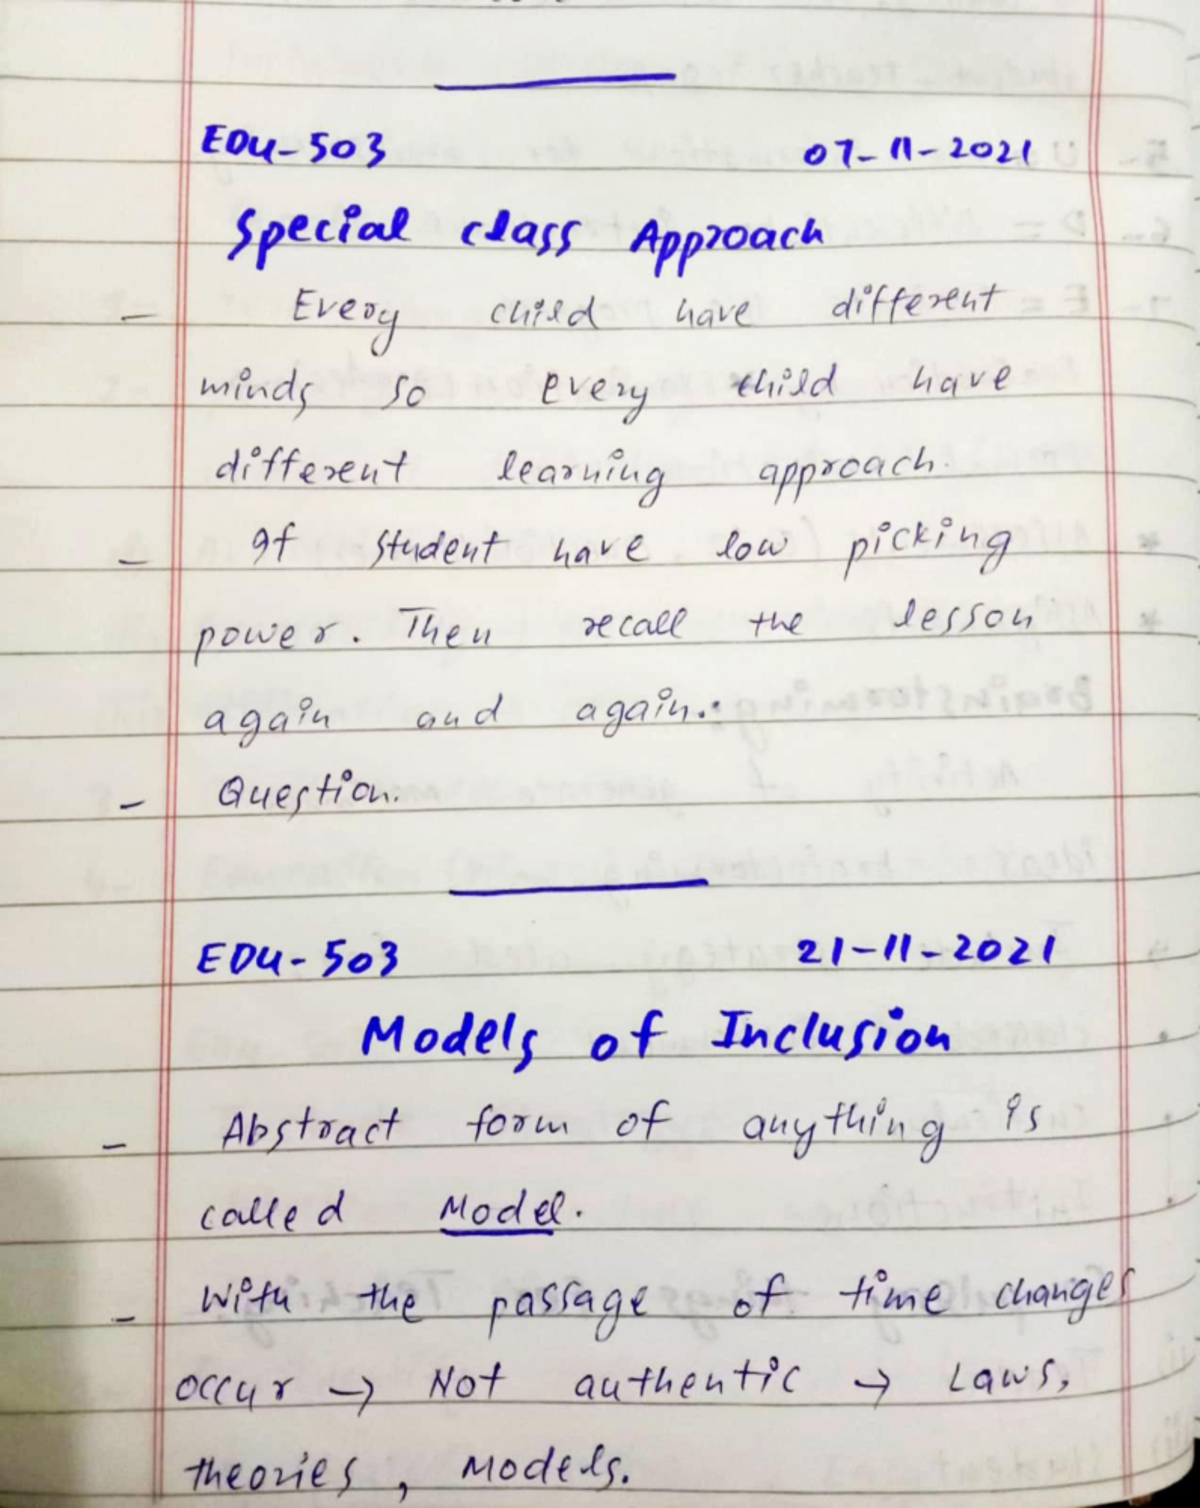 EDU-503 07-11-2021
Special class Approach
- Every child have different
minds so every child have
different learning approach.
- If student have low picking
power. Then recall the lesson
again and again.
- Question.
EDU-503 21-11-2021
Models of Inclusion
- Abstract form of anything is
called Model.
- With the passage of time changes
occur → Not authentic → Laws,
theories, Models.